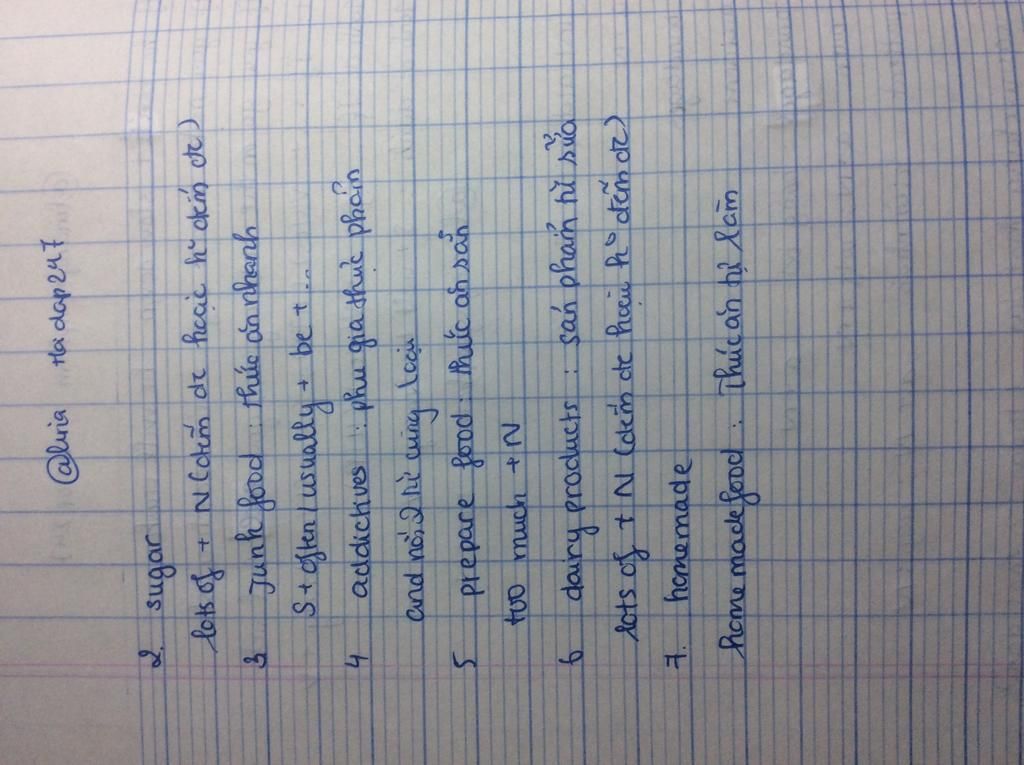 @liria Hoidap247
2. sugar
lots of + N (đếm đc hoặc k° đếm đc)
3 Junk food : thức ăn nhanh
S + often / usually + be + ...
4 addictives : phụ gia thực phẩm
and nối 2 từ cùng loại
5 prepare food : thức ăn sẵn
too much + N
6 dairy products : sản phẩm từ sữa
lots of + N (đếm đc hoặc k° đếm đc)
7. homemade
homemade food : Thức ăn tự làm